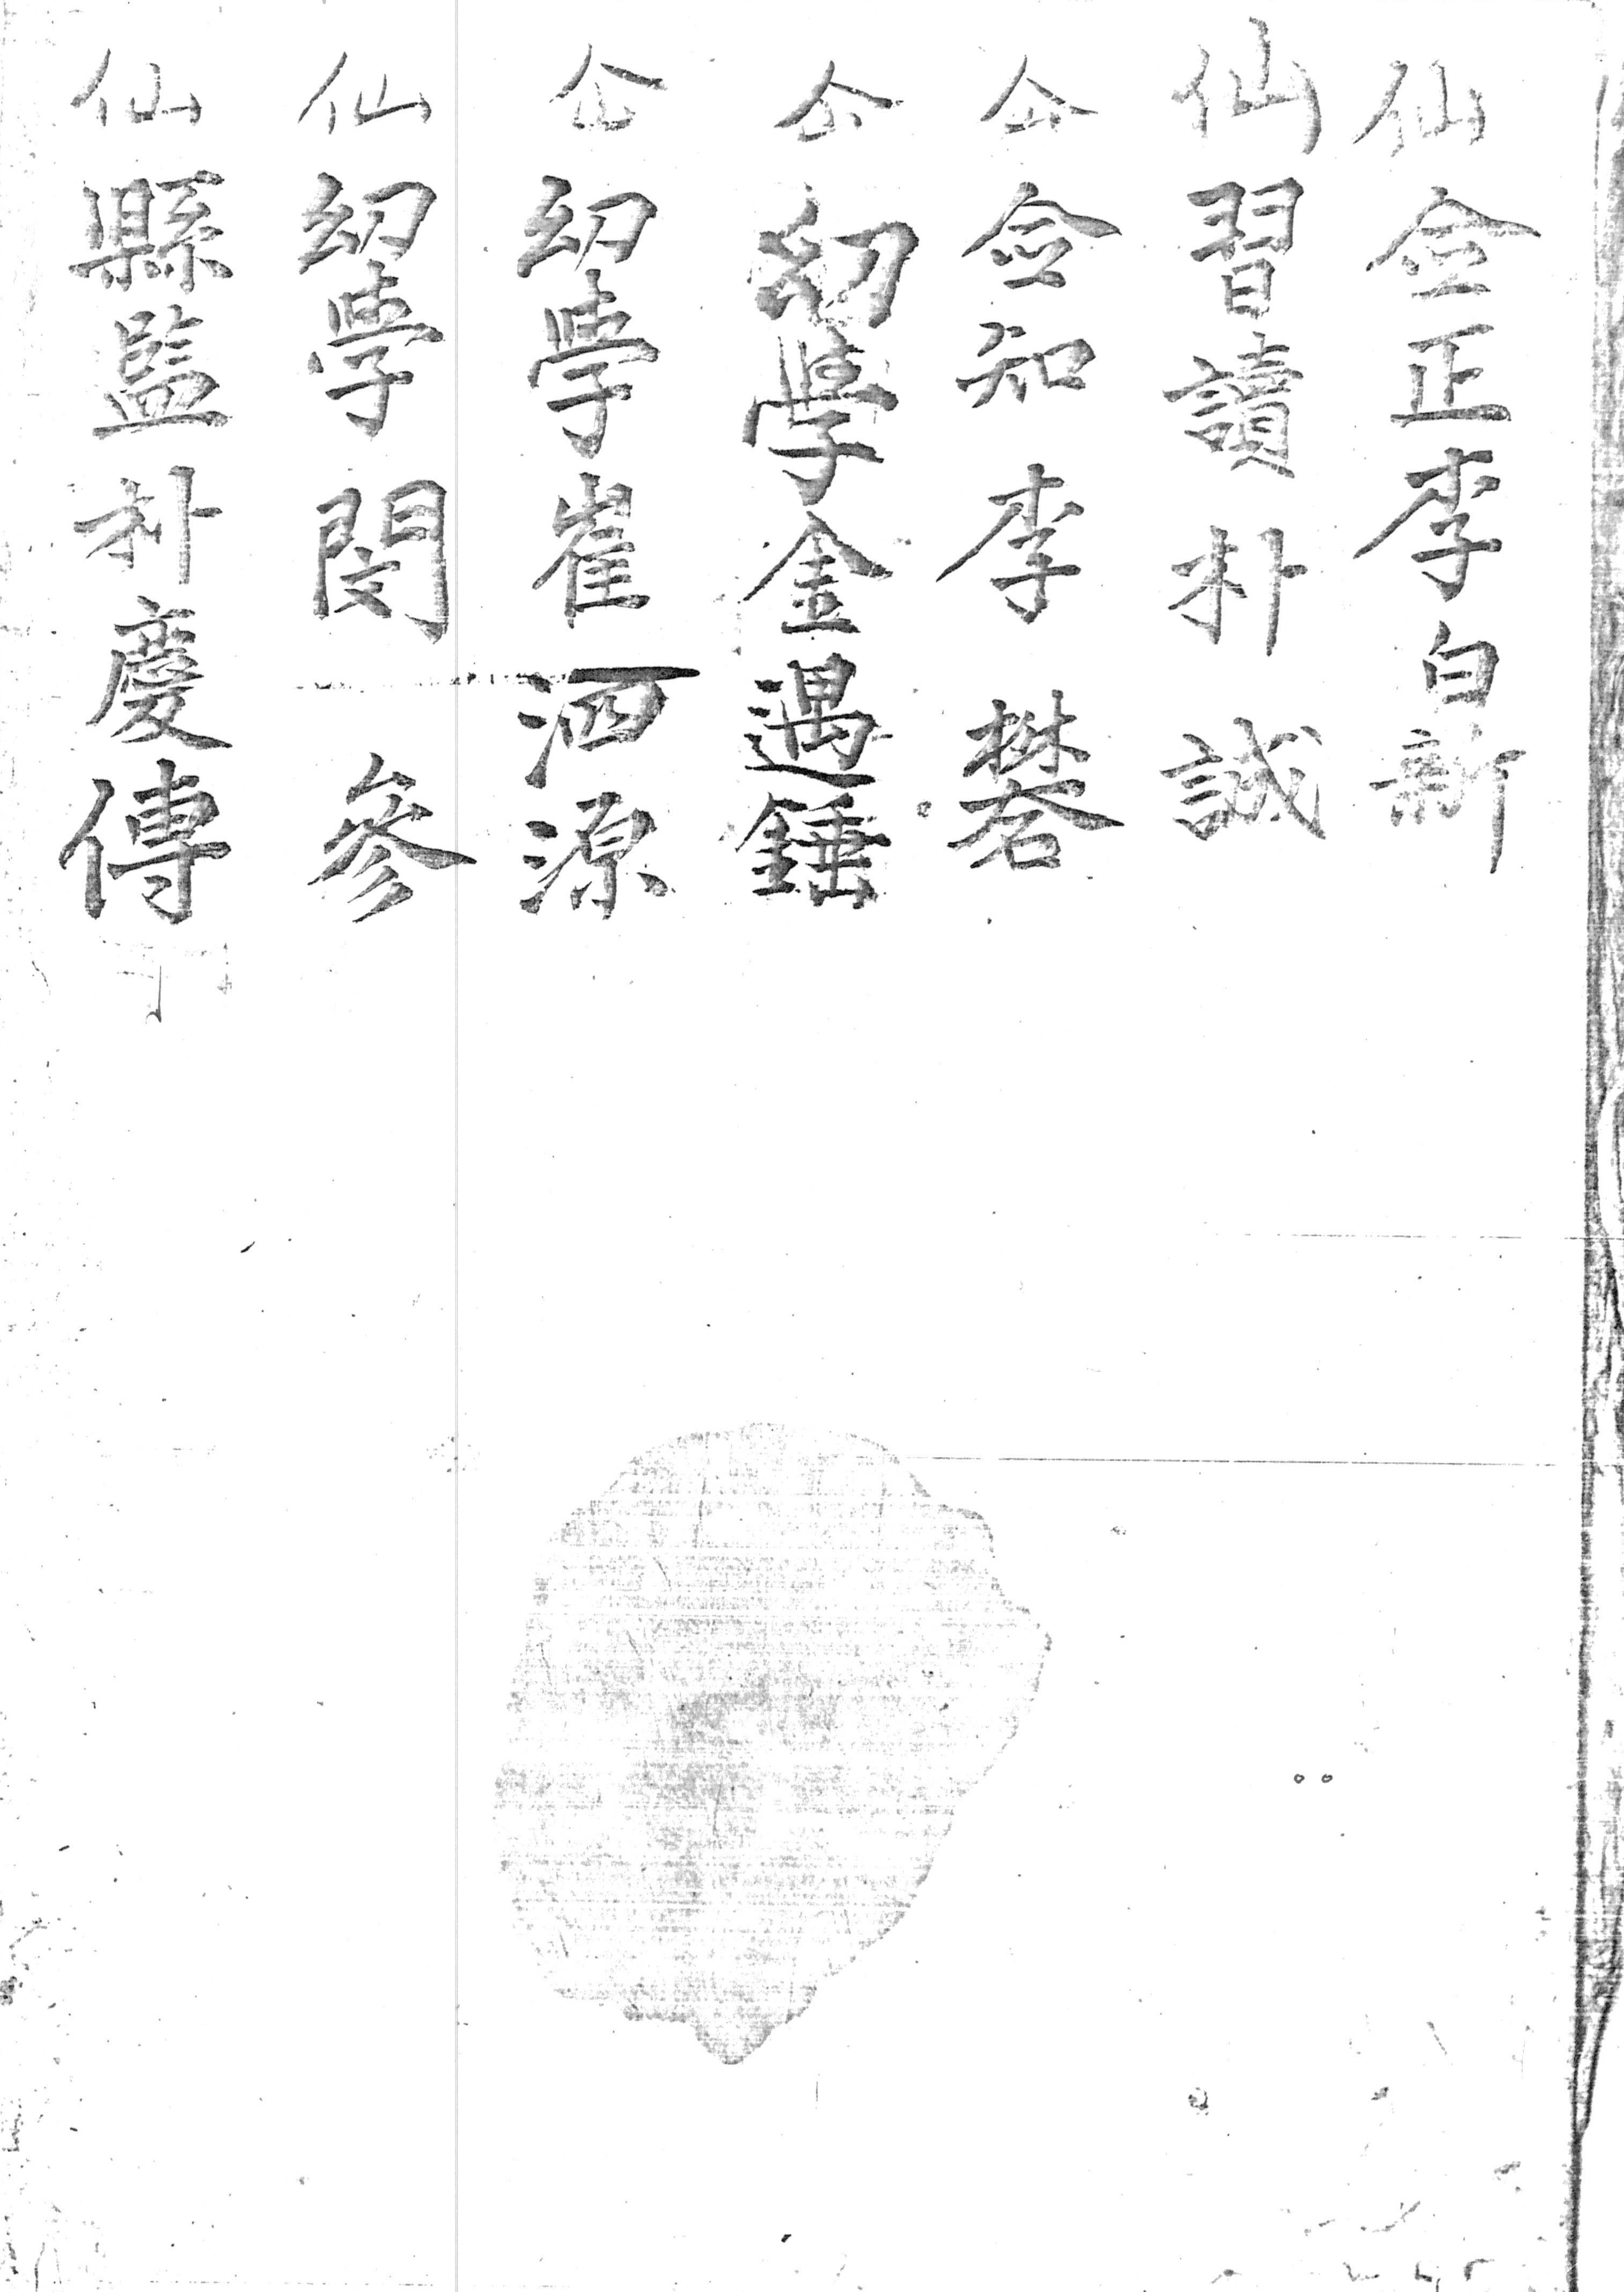 仙 僉正李白新
仙 習讀朴誠
仚 僉知李礬
仚 幼學金遇錘
仚 幼學崔泗源
仙 幼學閔參
仙 縣監朴慶傳